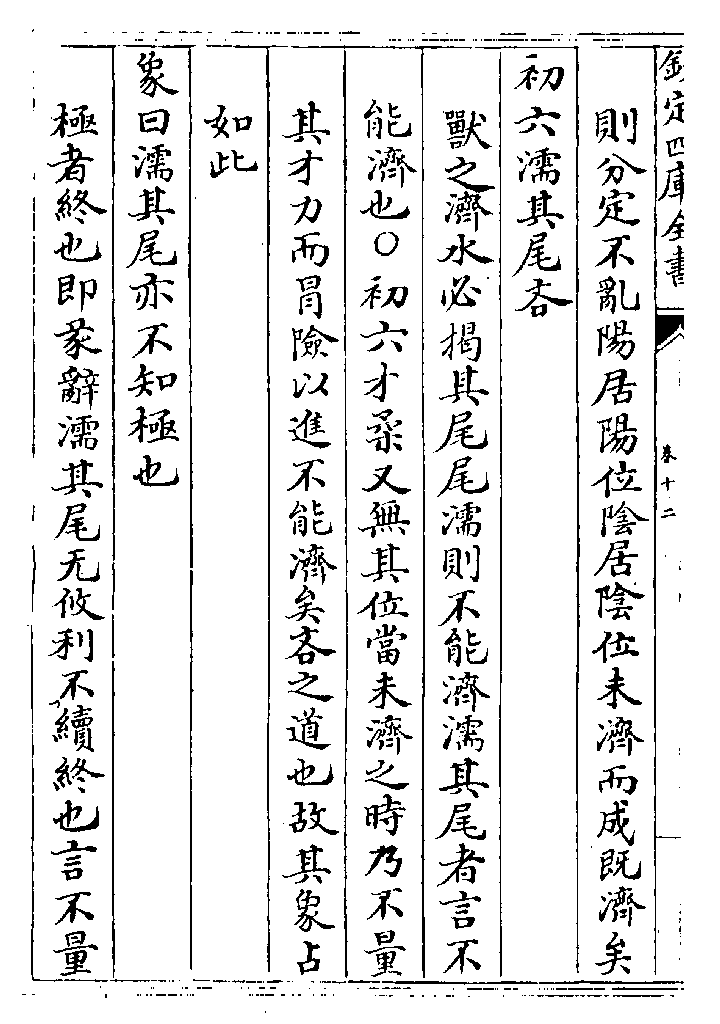 欽定四庫全書
卷十二
則分定不亂陽居陽位陰居陰位未濟而成既濟矣
初六濡其尾吝
獸之濟水必揭其尾尾濡則不能濟濡其尾者言不
能濟也○初六才柔又無其位當未濟之時乃不量
其才力而冒險以進不能濟矣吝之道也故其象占
如此
象曰濡其尾亦不知極也
極者終也即彖辭濡其尾无攸利不續終也言不量